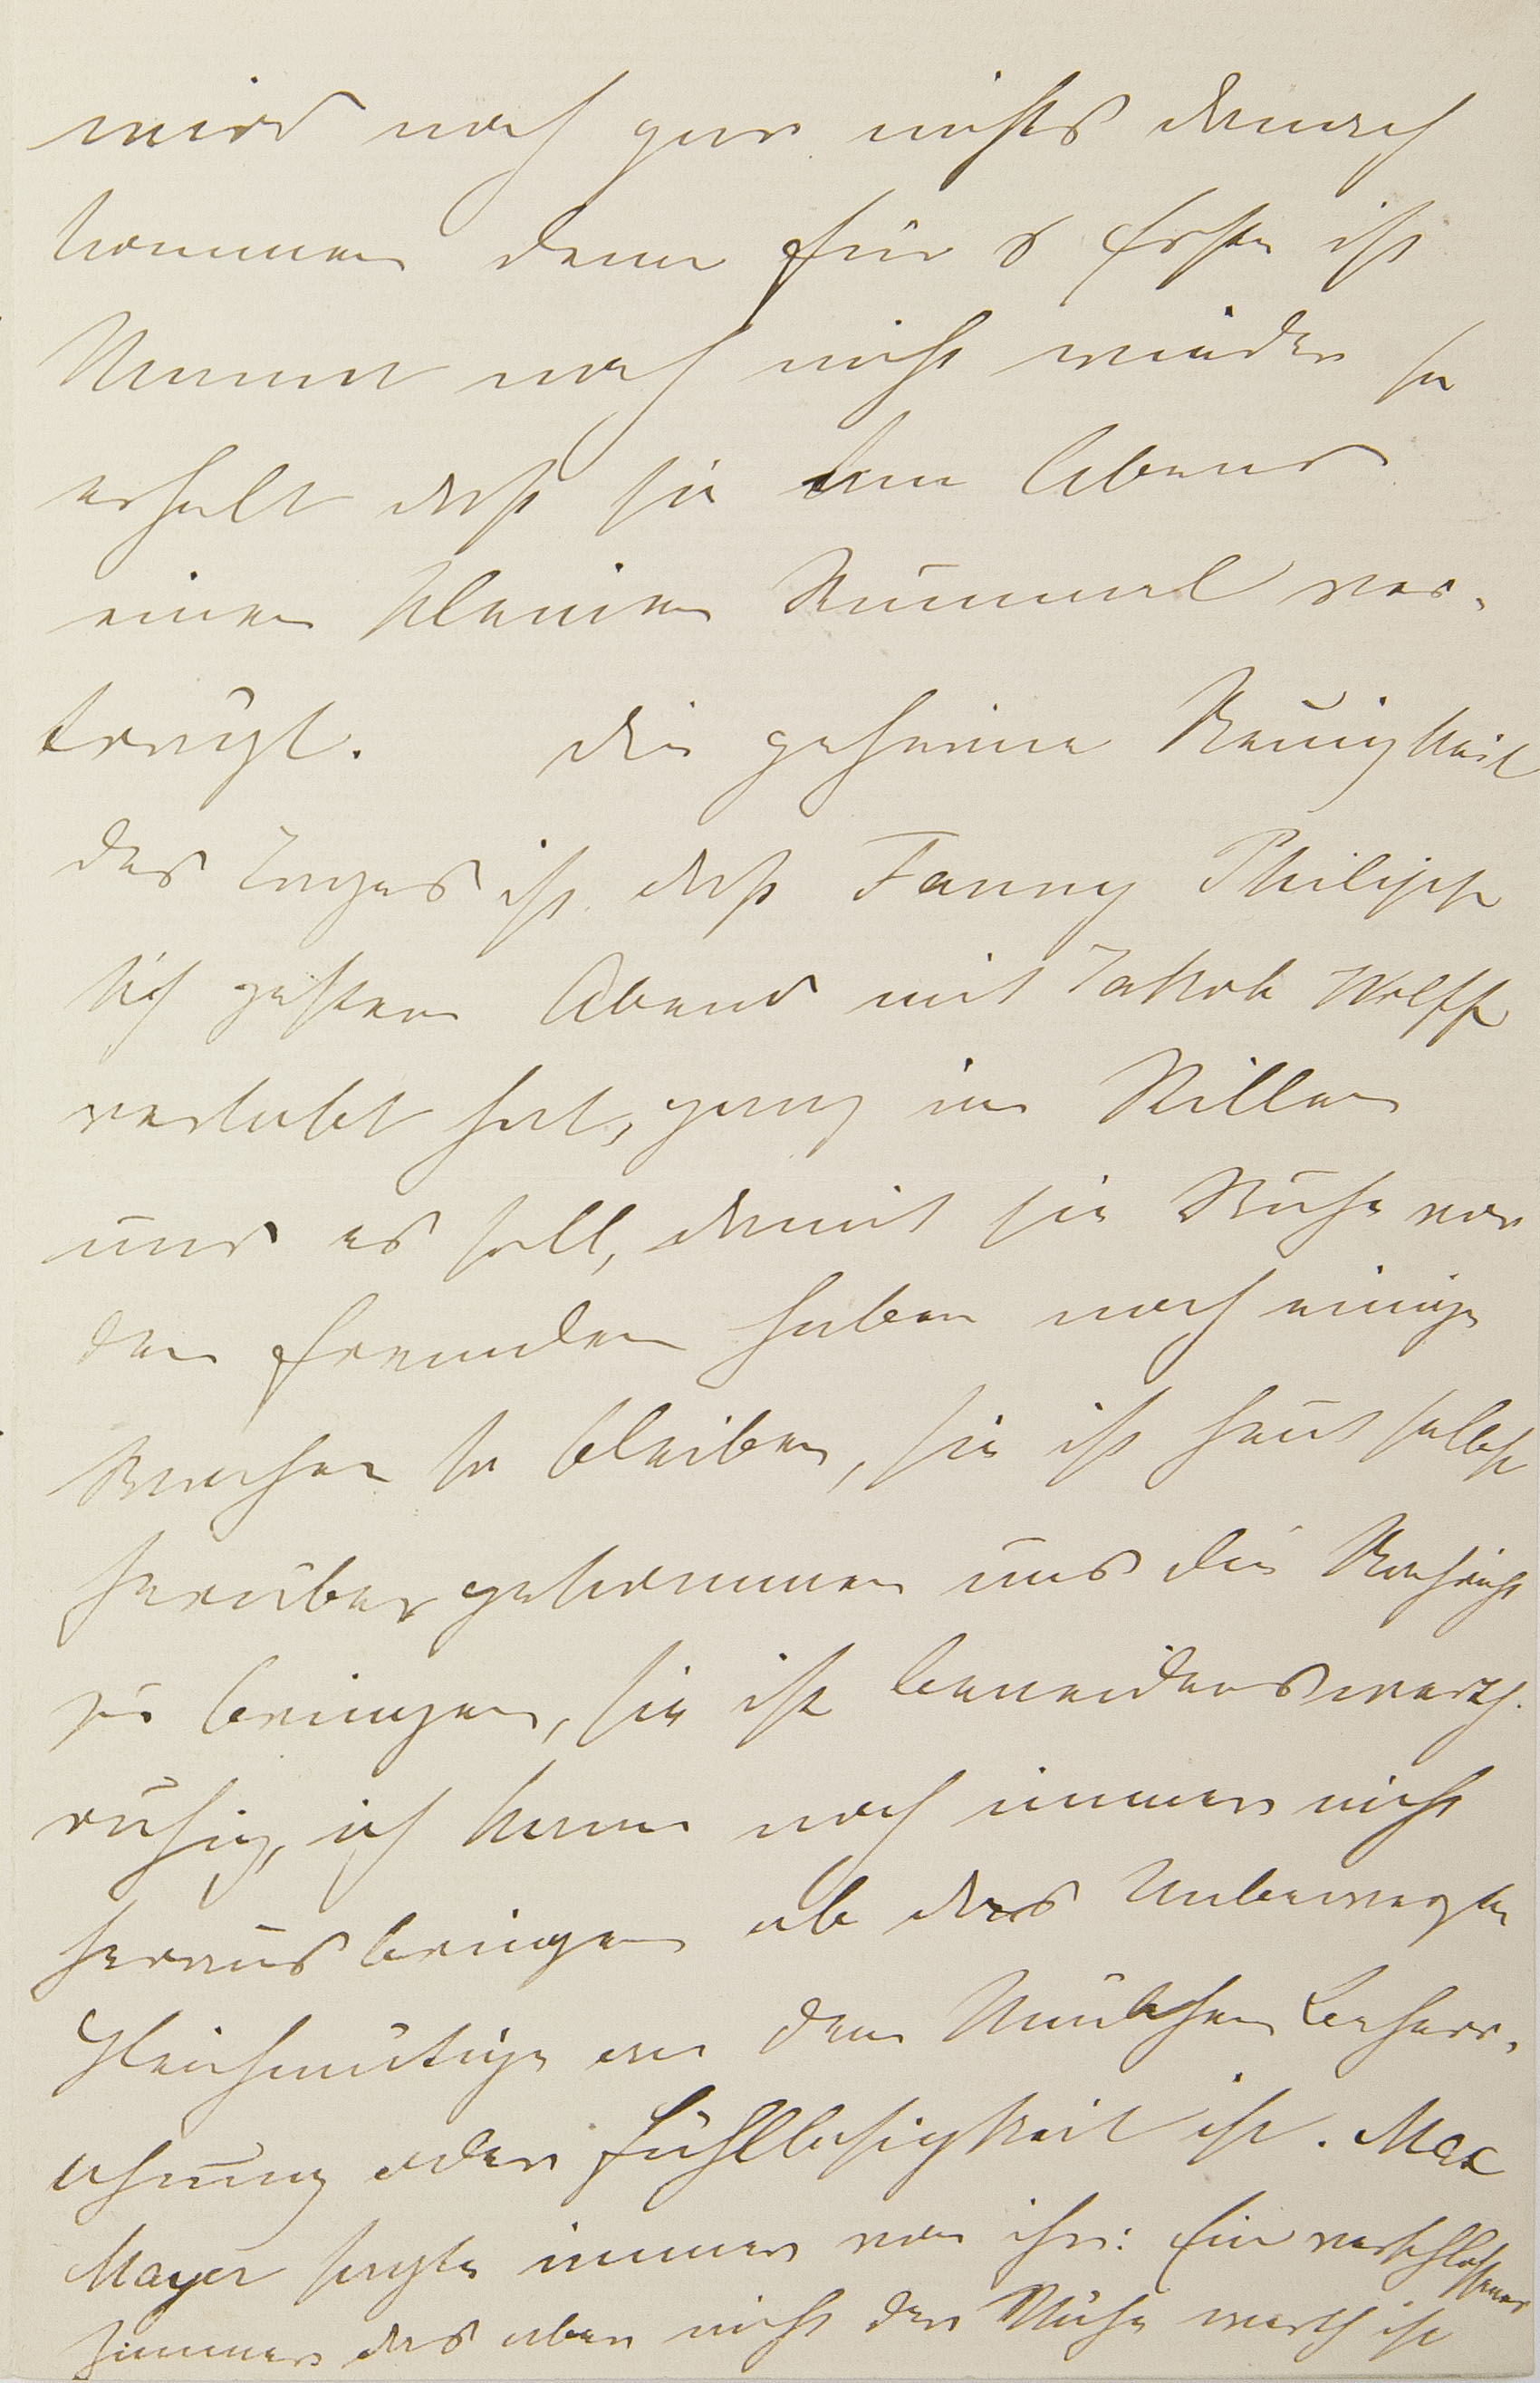 wird noch gar nichts danach
kommen denn für's Erste ist
Mama noch nicht wieder so
erholt daß sie am Abend
einen kleinen Rummel ver-
trägt. Die geheime Neuigkeit
des Tages ist daß Fanny Philipp
sich gestern Abend mit Jakob Wolff
verlobt hat, ganz im Stillen
und es soll, damit sie Ruhe vor
den Fremden haben noch einige
Wochen so bleiben, sie ist heut selbst
herüber gekommen uns die Nachricht
zu bringen, sie ist beneidenswerth
ruhig, ich kann noch immer nicht
herausbringen ob das Unbewegte
Gleichmütige an dem Mädchen Beherr-
schung oder Fühllosigkeit ist. Max
Mayer sagte immer von ihr: Ein verschlossenes
Zimmer das aber nicht der Mühe werth ist